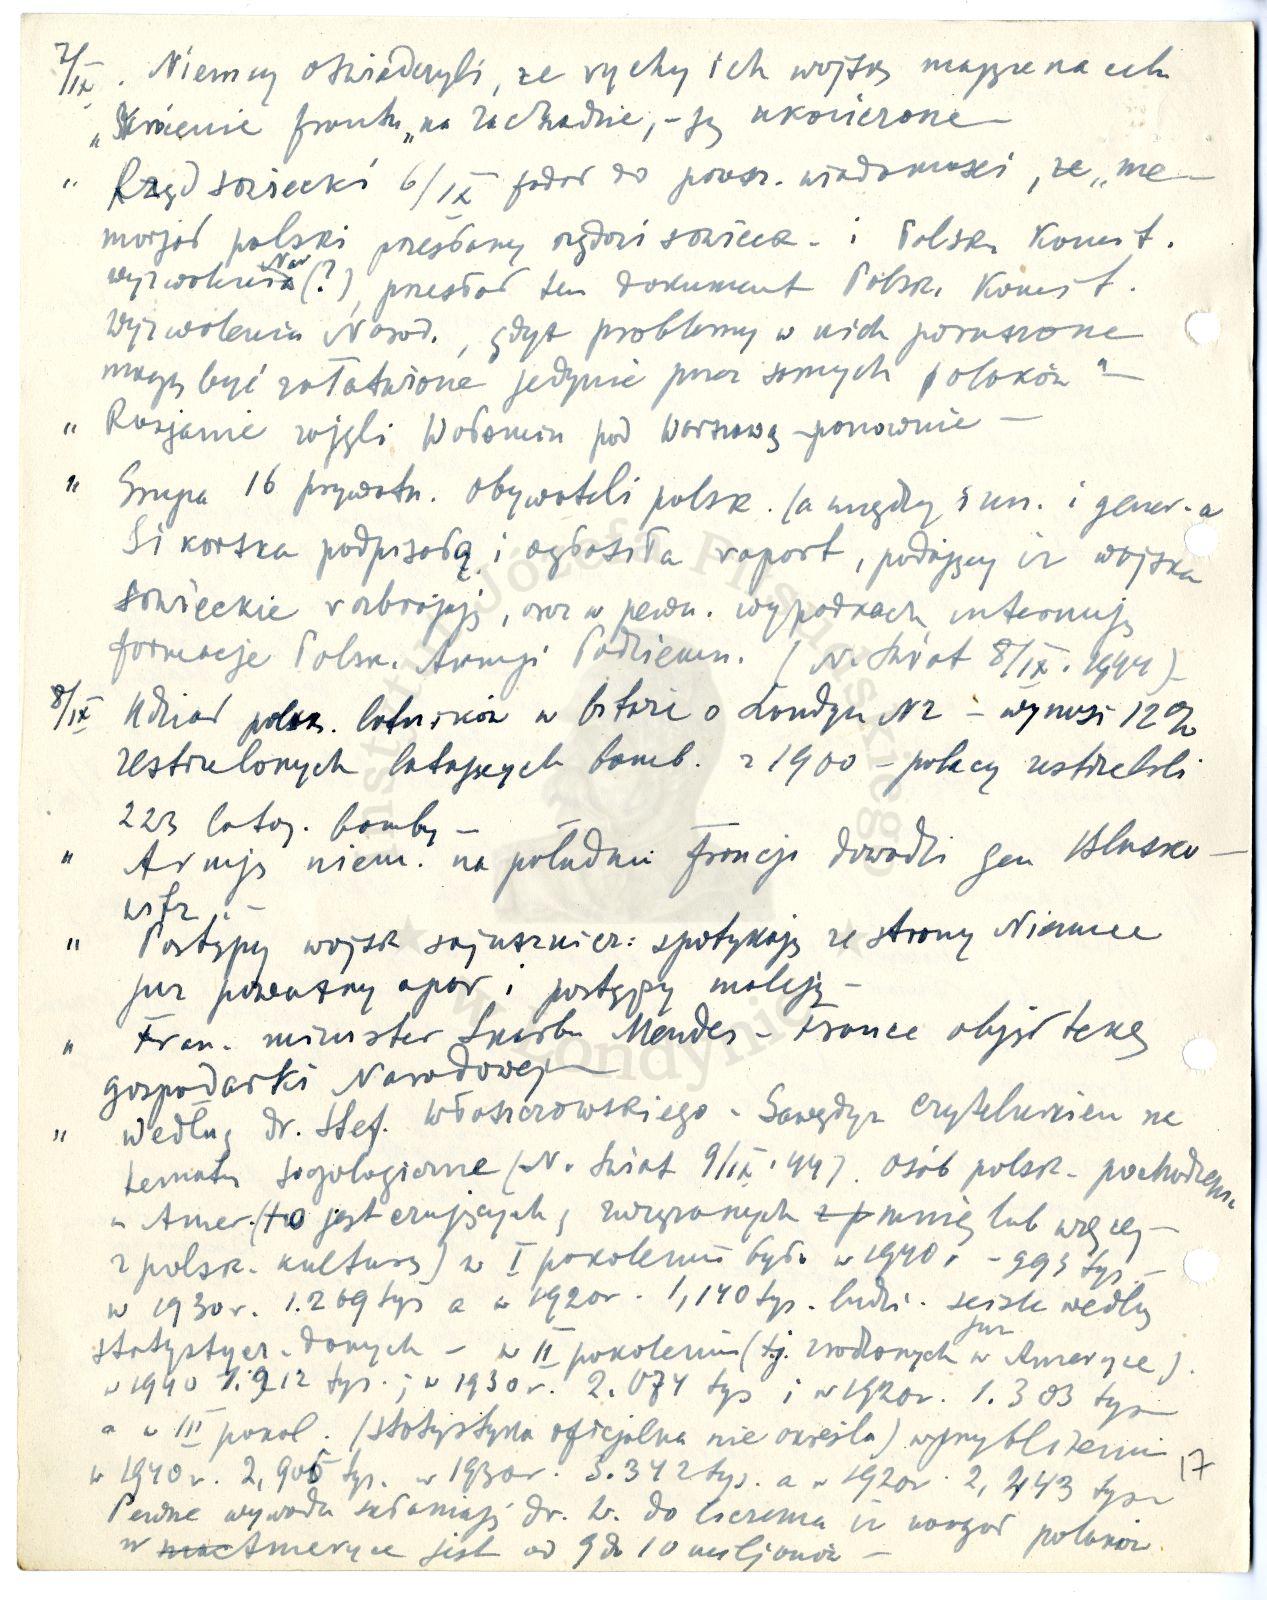 7/IX. Niemcy oświadczyli, że ruchy ich wojsk mające na celu
„Skrócenie frontu„ na zachodzie, - są ukończone —
" Rząd sowiecki 6/IX podał do powsz. wiadomości, że „me-
morjał polski przesłany rządowi sowieck. i Polsk. Komit.
wyzwolenia Nar (?), przesłał ten dokument Polsk. Komit.
Wyzwolenia Narod., gdyż problemy w nich poruszone
mogą być załatwione jedynie przez samych polaków" —
" Rosjanie zajęli Wołomin pod Warszawą - ponownie —
" Grupa 16 prywatn. obywateli polsk. (a między inn. i gener-a
Sikorska podpisałą i ogłosiła raport, podający iż wojska
sowieckie rozbrajają, oraz w pewn. wypadkach internują
formacje Polsk. Armji Podziemn. (N. Świat 8/IX. 1944) -
8/IX Udział polsk. lotników w bitwie o Londyn N2 - wynosi 12%
zestrzelonych latających bomb. z 1900 - polacy zestrzelili
223 lataj. bomby —
" Armją niem. na południu Francji dowodzi gen Blasko-
witz. —
" Postępy wojsk sojusznicz: spotykają ze strony Niemiec
już poważny opór i postępy maleją —
" Fran. minister Skarbu Mendes-France objął tekę
gospodarki Narodowej —
" według dr. Stef. Włoszczowskiego - Gawędy z czytelnikiem na
tematy socjologiczne (N. Świat 9/IX. 44). osób polsk. pochodzenia
w Amer. (to jest czujących, związanych mniej lub więcej —
z polsk. kulturą) w I pokoleniu było w 1940 r. - 993 tys. —
w 1930 r. 1.269 tys a w 1920 r. 1,140 tys. ludzi. ściśle według
statystycz. danych - w II pokoleniu (t.j. zrodzonych już w Ameryce).
w 1940 1.912 tys.; w 1930 r. 2.074 tys i w 1920 r. 1.303 tys —
a w III pokol. (statystyka oficjalna nie określa) w przybliżeniu
w 1940 r. 2,905 tys. w 1930 r. 3.342 tys. a w 1920 r. 2,443 tys — 17
Pewne wywody skłaniają dr. W. do liczenia iż narod polaków
w Ameryce jest od 9 do 10 miljonów —
Instytut Józefa Piłsudskiego w Londynie